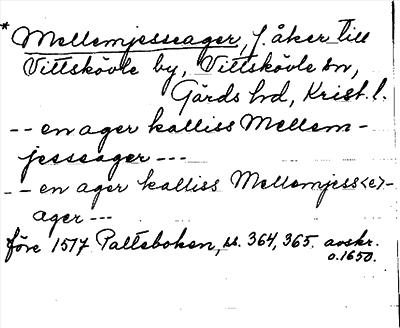 * Mellemjesseager, f. åker till
Vittskövle by, Vittskövle sn,
Gärds hd, Krist. l.
-- en ager kalliss Mellem-
jesseager ---
-- en ager kalliss Mellemjess<e>-
ager ---
före 1517 Palteboken, ss. 364, 365. avskr.
o. 1650.